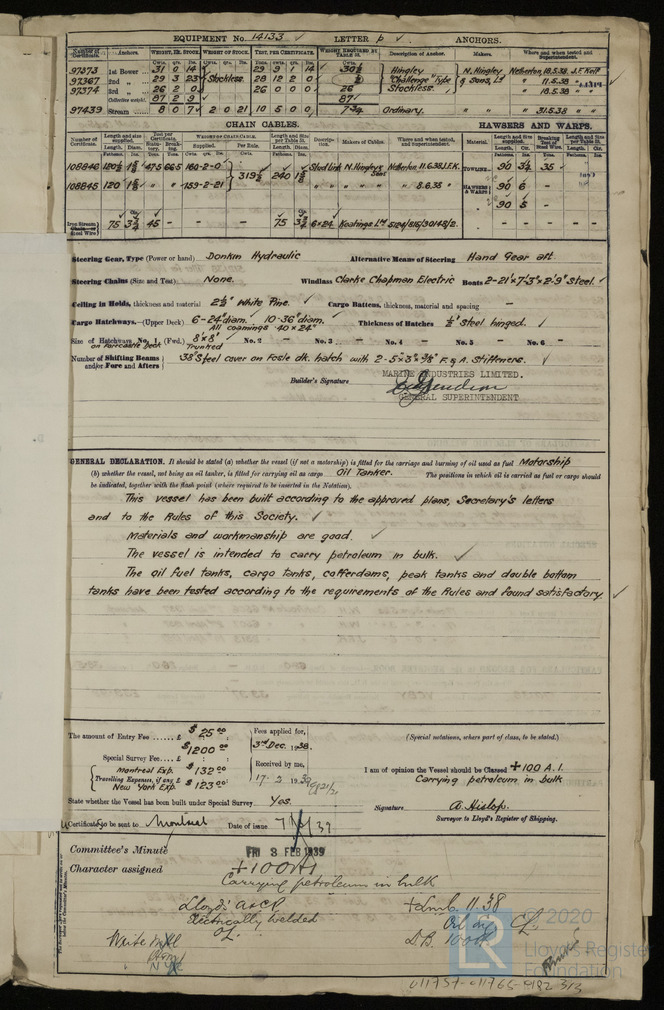 EQUIPMENT No. 14133 LETTER p ANCHORS.
Number of Certificate. Anchors. WEIGHT, EX. STOCK. WEIGHT OF STOCK. TEST, PER CERTIFICATE. WEIGHT REQUIRED BY TABLE 31. Description of Anchor. Makers. Where and when tested and Superintendent.
97373 1st Bower 31 0 14 Stockless 29 9 1 14 30½ Hingley N. Hingley Netherton, 18.5.38 J.F. Kell
97367 2nd 29 3 23 28 12 2 0 "Challenge" Type & Sons, Ld " 11.5.38
97374 3rd 26 2 0 26 0 0 0 26 Stockless. " 18.5.38 "
Collective weight 87 2 9 87
97439 Stream 8 0 7 2 0 21 10 5 0 0 7¾ Ordinary. " " 31.5.38 "
CHAIN CABLES. HAWSERS AND WARPS.
Number of Certificate. Length and size supplied. Test per Certificate. WEIGHT OF CHAIN CABLE. Length and Size per Table 31. Description. Makers of Cables. Where and when tested, and Superintendent. Material. Length and Size supplied. Breaking Test of Steel Wire. Length and Size per Table 31.
Fathoms. Ins. Supplied. Per Rule. Length. Diam.
108846 120½ 47.5 66.5 160-2-0 319½ 240 Stud Link N. Hingley & Sons Netherton 11.6.38 J.F.K. TOWLINE 90 3¾ 35
108845 120 " " 159-2-21 " " " " 8.6.38 " HAWSERS & WARPS 90 6 -
90 5 -
Iron Stream Chain or Steel Wire 75 3½ 45 - - 75 3½ 6×24 Keatings Ltd
Steering Gear, Type (Power or hand) Donkin Hydraulic Alternative Means of Steering Hand Gear aft
Steering Chains (Size and Test) None. Windlass Clarke Chapman Electric Boats 2-21'×7'-3"×2'-9" Steel.
Ceiling in Holds, thickness and material 2½" White Pine. Cargo Battens, thickness, material and spacing -
Cargo Hatchways.—(Upper Deck) 6-24" diam. 10-36" diam. Thickness of Hatches ½" Steel hinged.
All coamings 40×24"
Size of Hatchways No. 1 (Fwd.) 8'×8' No. 2 - No. 3 - No. 4 - No. 5 - No. 6 -
on Forecastle Deck Trunked
Number of Shifting Beams and/or Fore and Afters 38" Steel cover on Fosle dk. hatch with 2-5×3×3/8" F. & A. Stiffeners.
MARINE INDUSTRIES LIMITED.
Builder's Signature
GENERAL SUPERINTENDENT
GENERAL DECLARATION. It should be stated (a) whether the vessel (if not a motorship) is fitted for the carriage and burning of oil used as fuel Motorship
(b) whether the vessel, not being an oil tanker, is fitted for carrying oil as cargo Oil Tanker. The positions in which oil is carried as fuel or cargo should
be indicated, together with the flash point (where required to be inserted in the Notation).
This vessel has been built according to the approved plans, Secretary's letters
and to the Rules of this Society.
Materials and workmanship are good.
The vessel is intended to carry petroleum in bulk.
The oil fuel tanks, cargo tanks, cofferdams, peak tanks and double bottom
tanks have been tested according to the requirements of the Rules and found satisfactory.
The amount of Entry Fee ..... £ $ 25.00 Fees applied for, (Special notations, where part of class, to be stated.)
$1200.00 3rd Dec. 1938.
Special Survey Fee .... £ : : Received by me,
Montreal Exp. $ 132.00 I am of opinion the Vessel should be Classed +100 A.1.
Travelling Expenses, if any, £ New York Exp. $ 123.00 17-2 1939 Carrying petroleum in bulk
State whether the Vessel has been built under Special Survey Yes. Signature A. Hislop.
Surveyor to Lloyd's Register of Shipping.
Certificate to be sent to Montreal Date of issue
Committee's Minute FRI 3 FEB 1939
Character assigned +100A1
Carrying petroleum in bulk
Lloyd's A&CP +LMC 11.38
Electrically welded Oil Eng. CL.
Write
D.B. 100
© 2020
LR Lloyd's Register
Foundation
011757-011765-0182 3/3